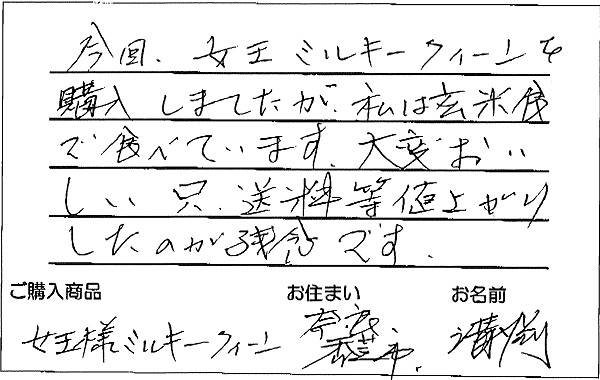 今回、女王ミルキークィーンを
購入しまてたが、私は玄米食
で食べています。大変おい
しい只、送料等値上がり
したのが残念です。
ご購入商品 お住まい お名前
女王様ミルキークィーン 奈良 香芝市